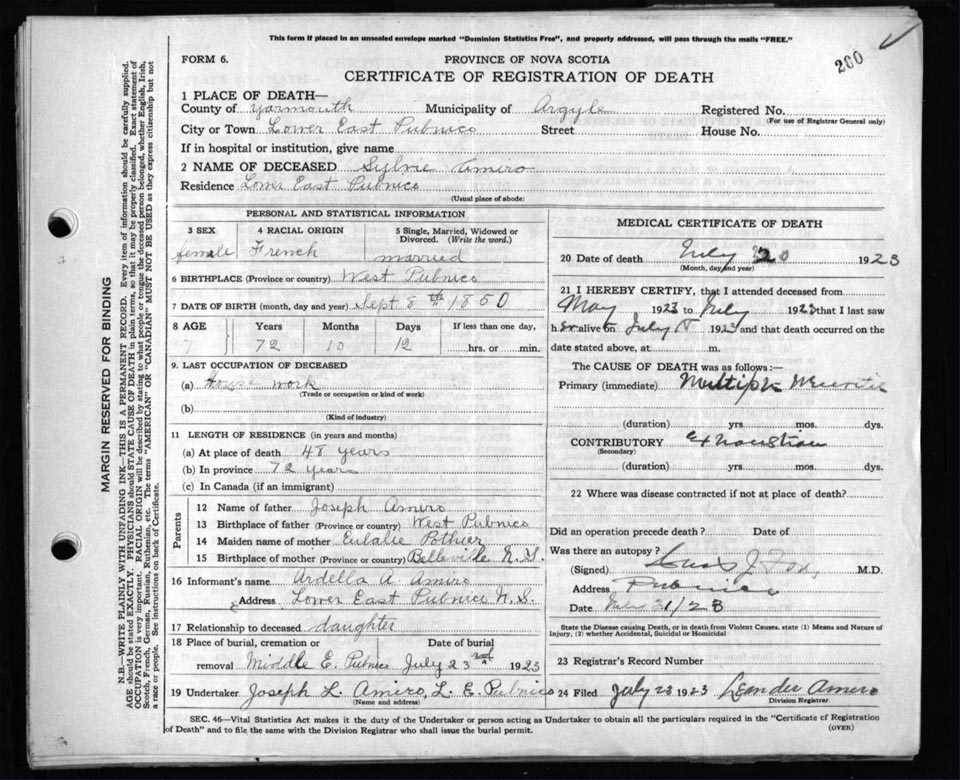 This form if placed in an unsealed envelope marked "Dominion Statistics Free", and properly addressed, will pass through the mails "FREE."
200
FORM 6.
PROVINCE OF NOVA SCOTIA
CERTIFICATE OF REGISTRATION OF DEATH
1 PLACE OF DEATH—
County of Yarmouth Municipality of Argyle Registered No.
(For use of Registrar General only)
City or Town Lower East Pubnico Street House No.
If in hospital or institution, give name
2 NAME OF DECEASED Sylvie Amiro
Residence Lower East Pubnico
(Usual place of abode)
MARGIN RESERVED FOR BINDING
N.B.—WRITE PLAINLY WITH UNFADING INK—THIS IS A PERMANENT RECORD. Every item of information should be carefully supplied.
AGE should be stated EXACTLY. PHYSICIANS should STATE CAUSE OF DEATH in plain terms, so that it may be properly classified. Exact statement of
OCCUPATION is very important. RACIAL ORIGIN will be described by stating to what people or tongue the deceased person belonged, whether English, Irish,
Scotch, French, German, Russian, Ruthenian, etc. The terms "AMERICAN" OR "CANADIAN" MUST NOT BE USED as they express citizenship but not
a race or people. See instructions on back of Certificate.
PERSONAL AND STATISTICAL INFORMATION
3 SEX 4 RACIAL ORIGIN 5 Single, Married, Widowed or Divorced. (Write the word.)
female French married
6 BIRTHPLACE (Province or country) West Pubnico
7 DATE OF BIRTH (month, day and year) Sept 8th 1850
8 AGE Years Months Days If less than one day,
7 72 10 12 hrs. or min.
9. LAST OCCUPATION OF DECEASED
(a) House work
(Trade or occupation or kind of work)
(b)
(Kind of industry)
11 LENGTH OF RESIDENCE (in years and months)
(a) At place of death 48 years
(b) In province 72 years
(c) In Canada (if an immigrant)
Parents
12 Name of father Joseph Amiro
13 Birthplace of father (Province or country) West Pubnico
14 Maiden name of mother Eulalie Pothier
15 Birthplace of mother (Province or country) Belleville N.S.
16 Informant's name Ardella A. Amiro
Address Lower East Pubnico N.S.
17 Relationship to deceased daughter
18 Place of burial, cremation or Date of burial
removal Middle E. Pubnico July 23rd 1923
19 Undertaker Joseph L. Amiro, L. E. Pubnico
(Name and address)
MEDICAL CERTIFICATE OF DEATH
20 Date of death July 20 1923
(Month, day and year)
21 I HEREBY CERTIFY, that I attended deceased from
May 1923 to July 1923 that I last saw
h er alive on July 1923 and that death occurred on the
date stated above, at m.
The CAUSE OF DEATH was as follows:—
Primary (immediate) Multiple Neuritis
(duration) yrs. mos. dys.
CONTRIBUTORY Exhaustion
(Secondary)
(duration) yrs. mos. dys.
22 Where was disease contracted if not at place of death?
Did an operation precede death? Date of
Was there an autopsy?
(Signed) J. Fox, M.D.
Address Pubnico
Date July 21/23
State the Disease causing Death, or in death from Violent Causes, state (1) Means and Nature of
Injury, (2) whether Accidental, Suicidal or Homicidal
23 Registrar's Record Number
24 Filed July 23 1923 Leander Amiro
Division Registrar.
SEC. 46—Vital Statistics Act makes it the duty of the Undertaker or person acting as Undertaker to obtain all the particulars required in the "Certificate of Registration
of Death" and to file the same with the Division Registrar who shall issue the burial permit.
(OVER)